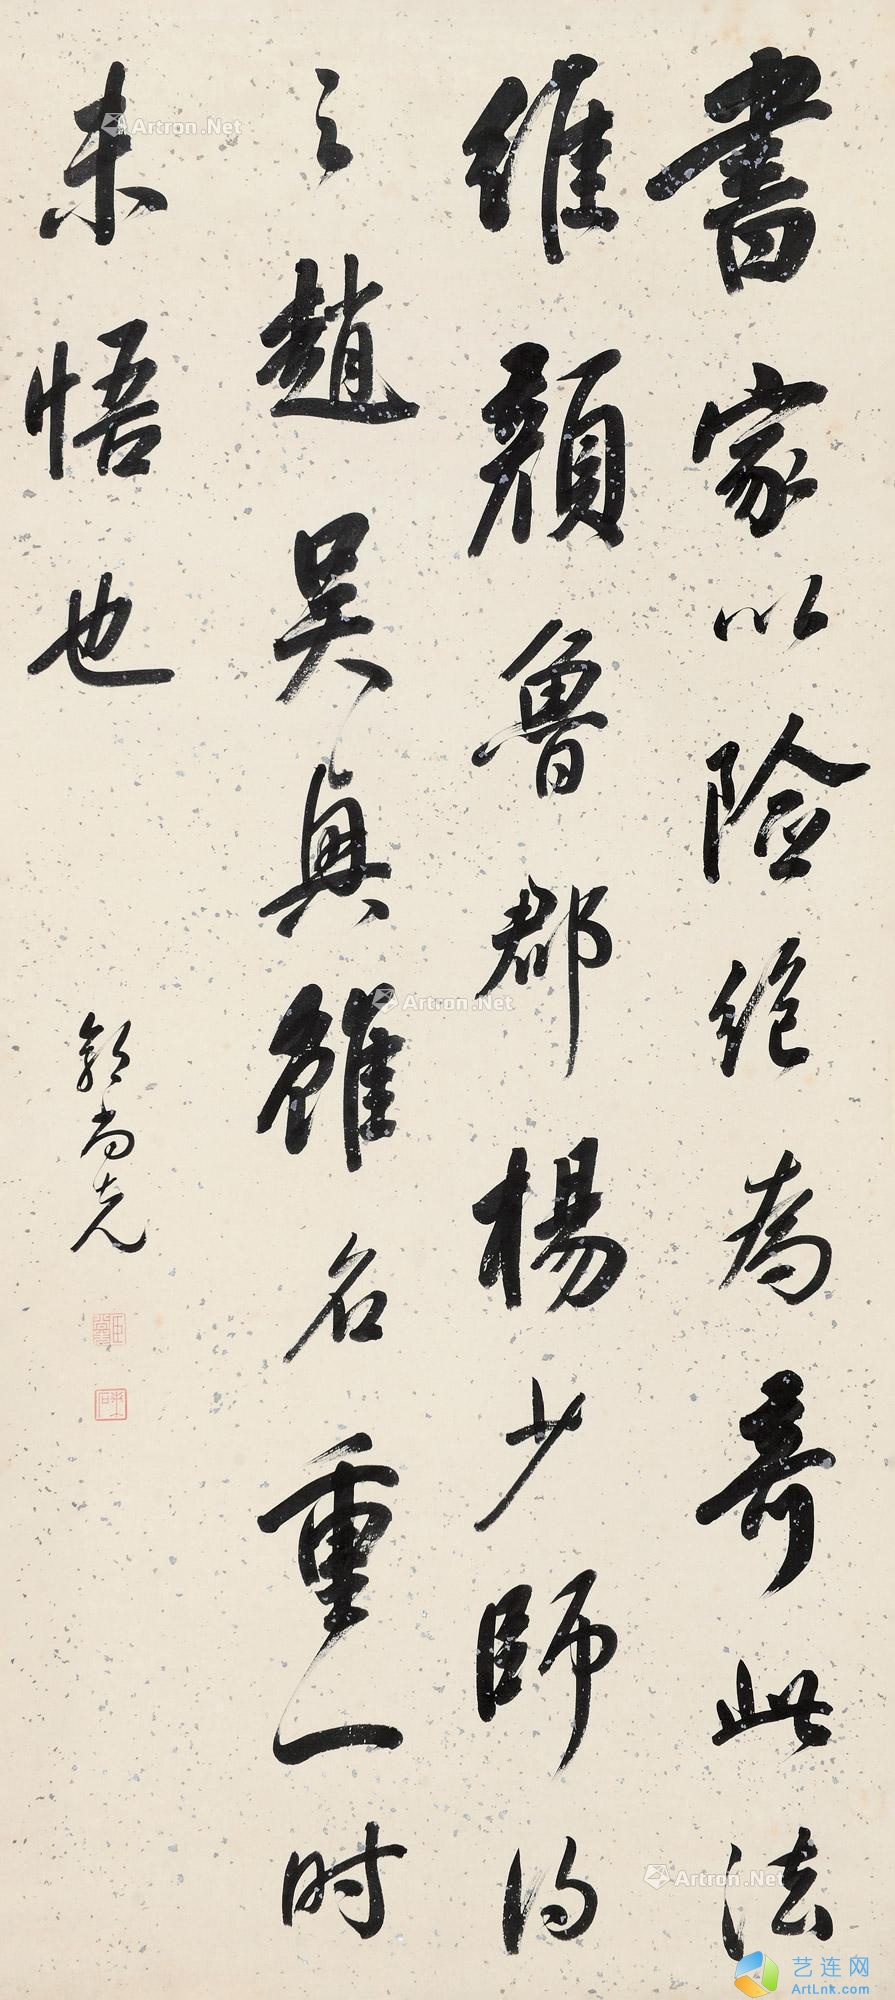 書家以險絕為奇此法
維顏魯郡楊少師得
之趙吳興雖名重一時
未悟也
郭尚先
Artron.Net
Artron.Net
Artron.Net
艺连网
ArtLnk.com